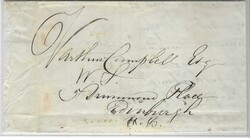 Arthur Campbell Esq
W. S.
5 Drummond Place
Edinburgh
N.B.